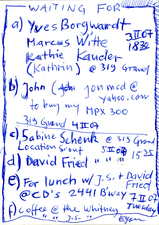 WAITING FOR
a) Yves Borgwardt
Marcus Witte 3 II 07
Kathie Kauder 1830
(Kathrin) @ 319 Grand
b) John ( jonmcd @
yahoo.com
to buy my
MPX 300
319 Grand 4 II 07
c) Sabine Schenk @ 319 Grand
Location Scout 5 II 07 1525
d) David Fried " " "
e) For lunch w/ J.S. + David Fried
@ CD's 2441 B'way 7 II 07
Tuesday
f) coffee @ the Whitney
" " J.S. "